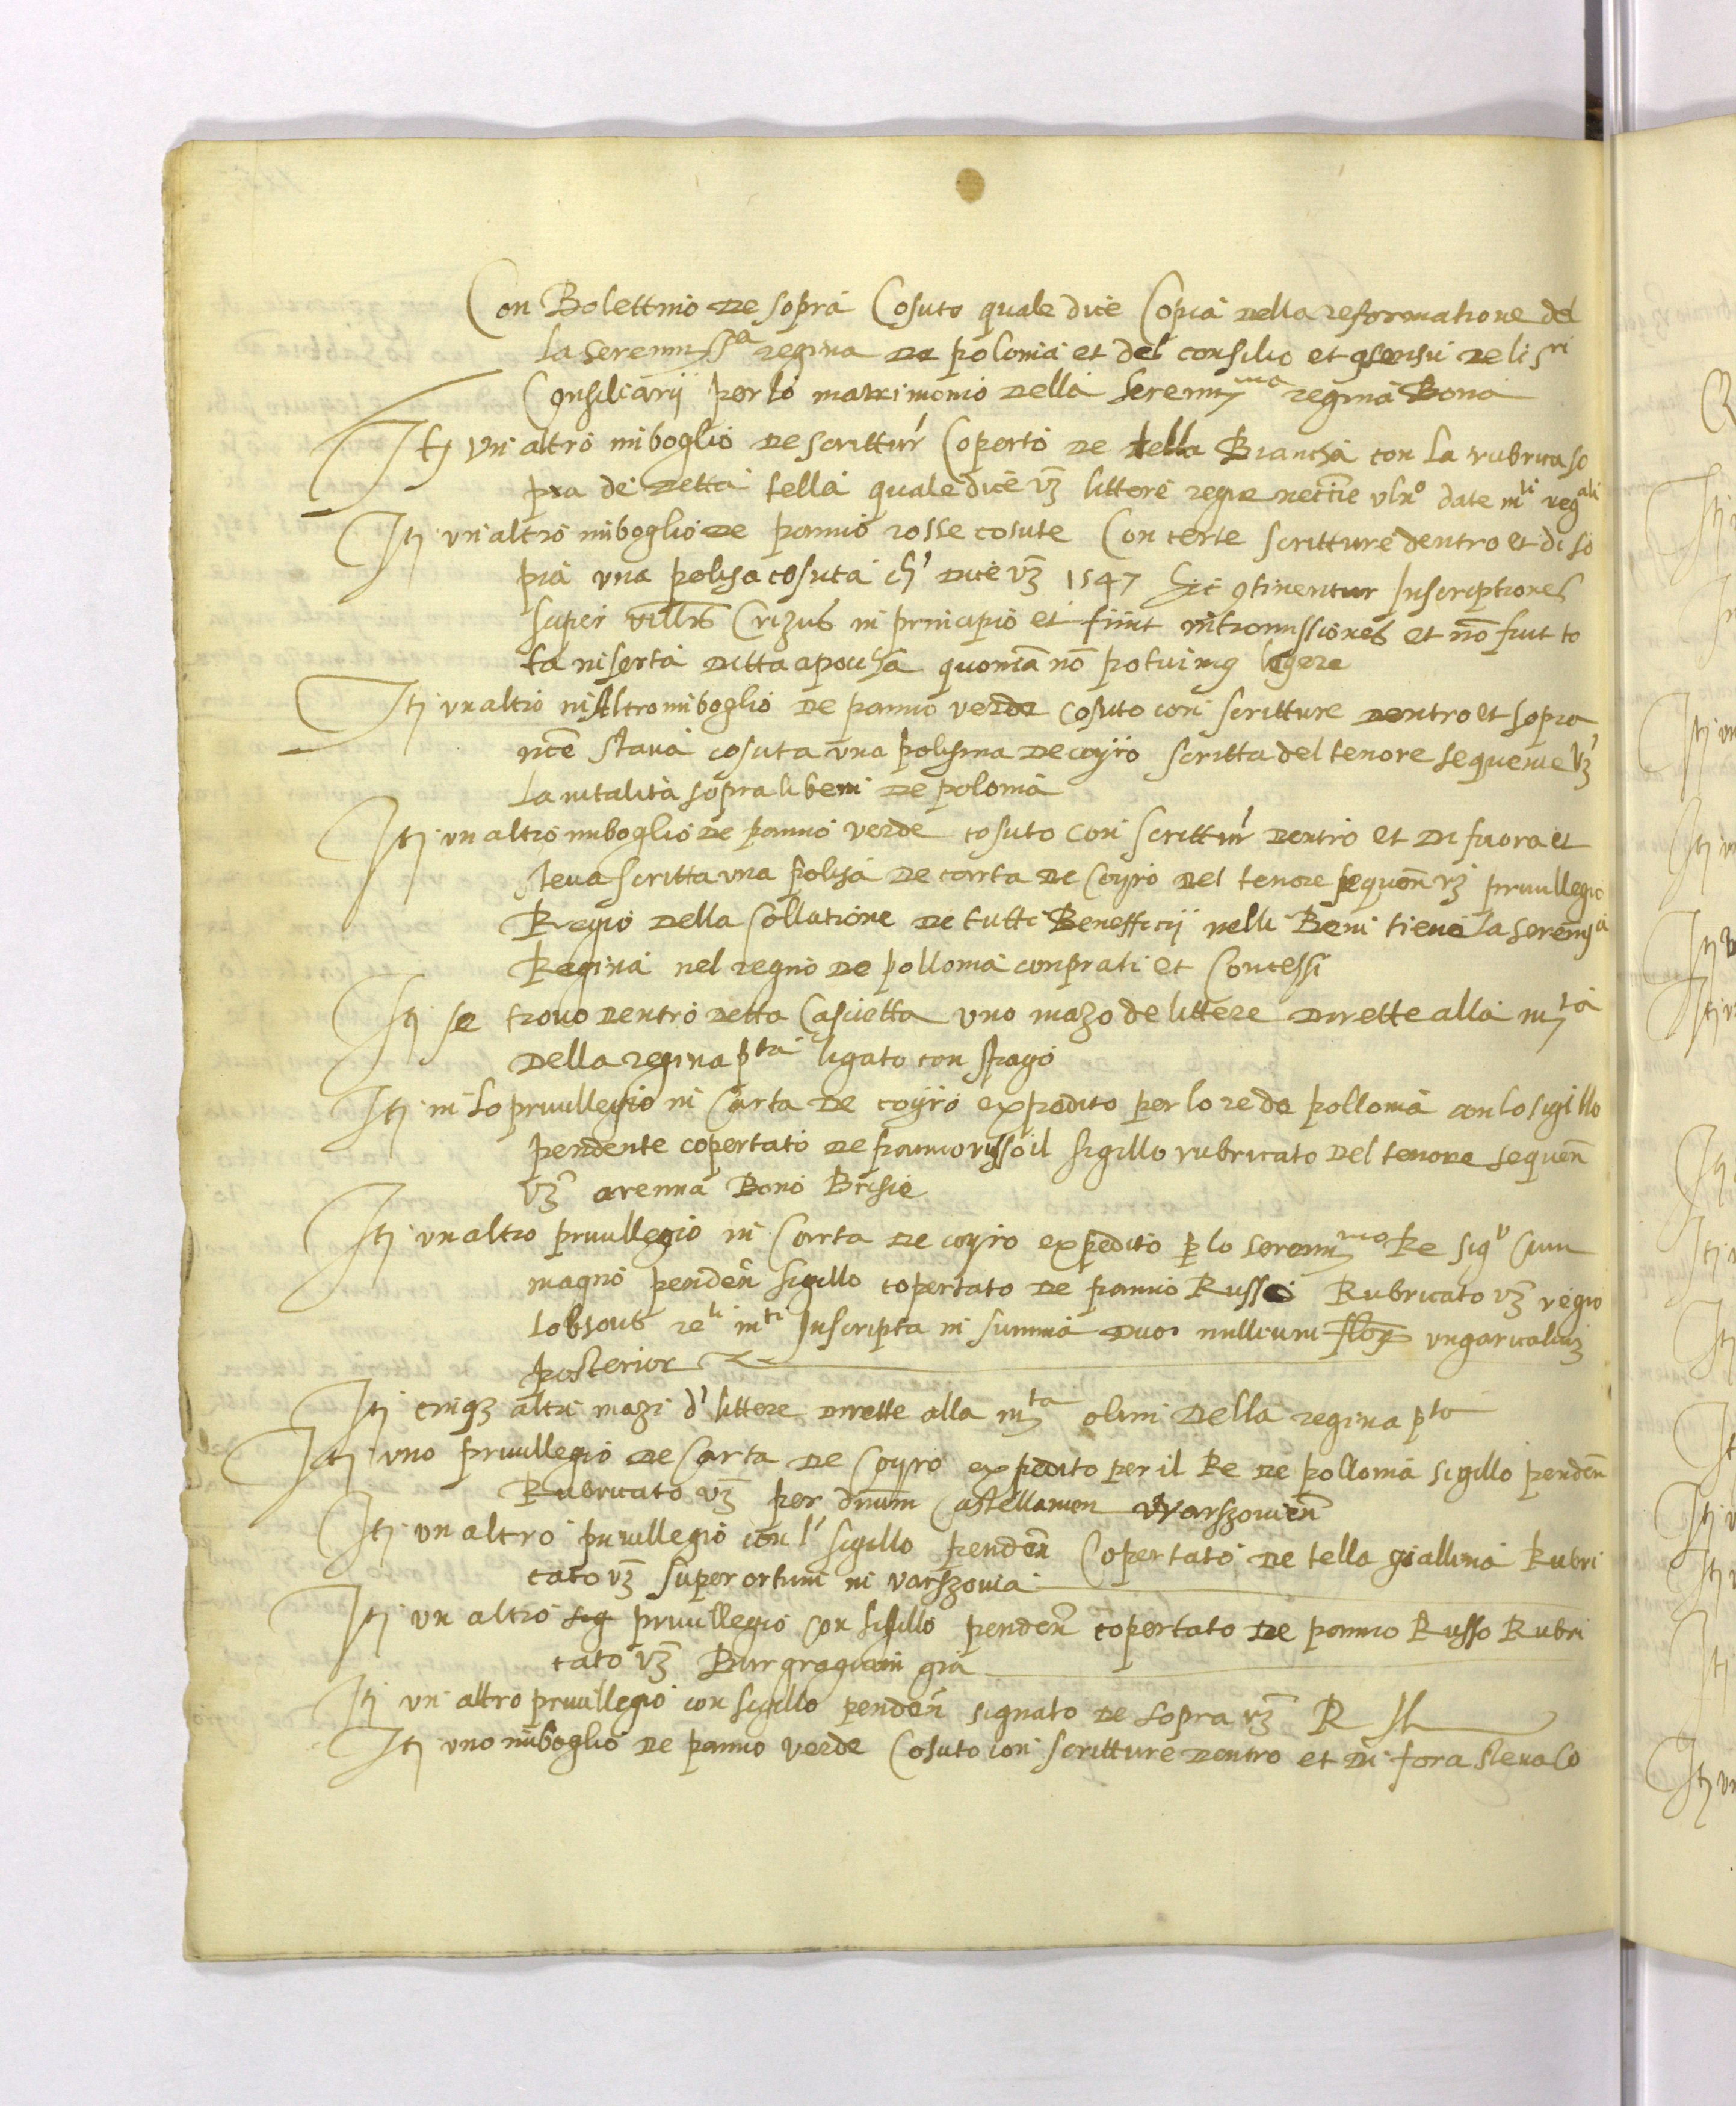 Con Bolettino de sopra Cosuto quale dice Copia della reformatione del
la serenissa regina de polonia et del consilio et consensu de li sri
Consiliarij per lo matrimonio della serenma regina Bona
Itj un altro imboglio de scrittur Coperto de tella Biancha con la rubrica so
pra de detta tella quale dice vz littere regie date mti regali
Itj un altro imboglio de panno rosse cosute Con certe scritture dentro et di so
pra una polisa cosuta ch' dice vz 1547 hic continentur Inscriptiones
super villis Crizus in principio et fiunt intromissiones et no fuit to
ta inserta ditta apocha quonia no potuimus legere
Itj un altro in Altro imboglio de panno verde cosuto con scritture dentro et sopra
nce stava cosuta una polisina de coyro scritta del tenore sequente vz
La vitalita sopra li beni de polonia
Itj un altro imboglio de panno verde cosuto con scrittur dentro et di fuora et
steva scritta una polisa de carta de Coyro del tenore sequen vz privillegio
Regio della Collatione de tutti Benefficij nelli Beni tiene la serenma
Regina nel regno de pollonia conprati et Concessi
Itj se trovo dentro detta Cascietta uno mazo de littere dirette alla mta
della regina pta ligato con spago
Itj in lo privillegio in Carta de coyro expedito per lo re de pollonia con lo sigillo
pendente copertato de panno russo il sigillo rubricato del tenore sequen
vz arenna Bono Brisie
Itj un altro privillegio in Carta de coyro expedito p lo serenmo Re sigo Cum
magno penden sigillo copertato de panno Russo Rubricato vz regio
reli mti Inscripta in summa duor millium flor ungaricalium
posterior
Itj cinqz altri mazi d' littere dirette alla mta olim della regina pta
Itj uno privillegio de Carta de Coyro expedito per il Re de pollonia sigillo penden
Rubricato vz per dnum Castellanum Warszovien
Itj un altro privillegio con l' sigillo penden Copertato de tella giallina Rubri
cato vz super ortum in varszovia
Itj un altro sig privillegio con sigillo penden copertato de panno Russo Rubri
cato vz
Itj un altro privillegio con sigillo penden signato de sopra vz R H
Itj uno imboglio de panno verde Cosuto con scritture dentro et di fora steva Co